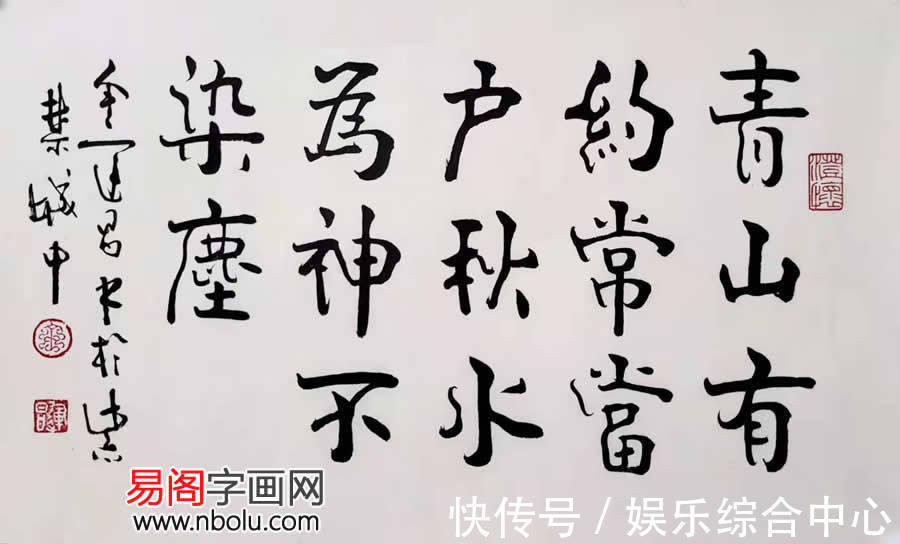 青山有
約常當
户秋水
為神不
染塵
運昌书於
城中
澄懷
易阁字画网
www.nbolu.com
快传号 / 娱乐综合中心